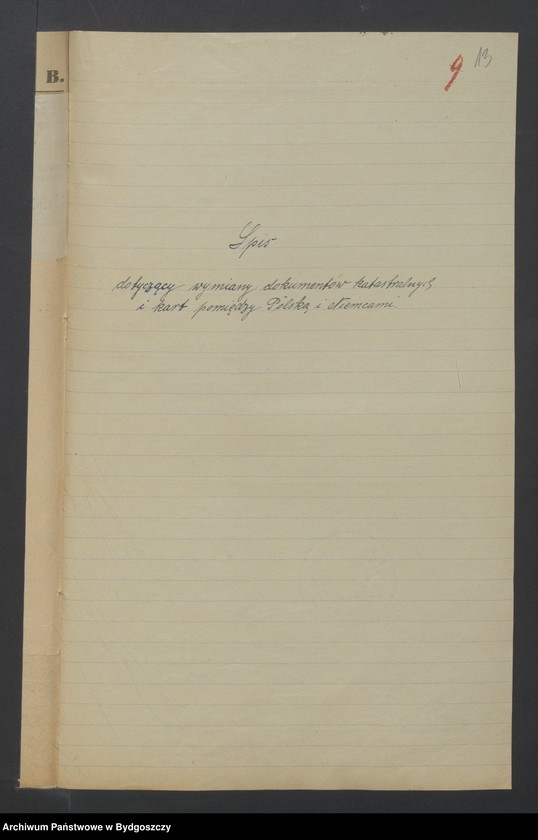 B.
9 13
Spis
dotyczący wymiany dokumentów katastralnych
i kart pomiędzy Polską i Niemcami
Archiwum Państwowe w Bydgoszczy